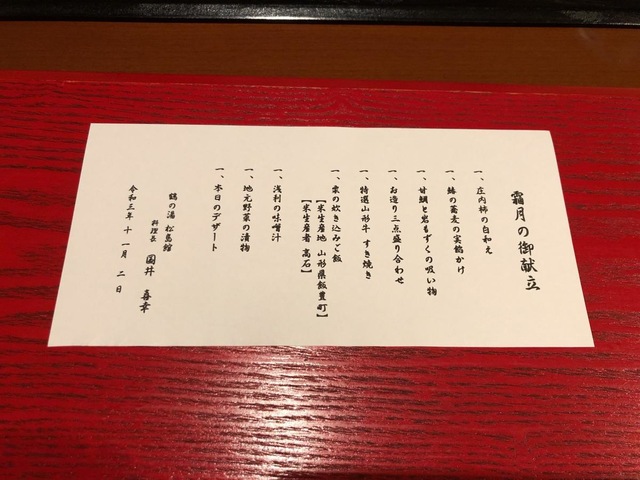 霜月の御献立
一、庄内柿の白和え
一、鰆の蕎麦の実餡かけ
一、甘鯛と岩もずくの吸い物
一、お造り三点盛り合わせ
一、特選山形牛 すき焼き
一、栗の炊き込みご飯
【米生産地 山形県飯豊町】
【米生産者 高石】
一、浅利の味噌汁
一、地元野菜の漬物
一、本日のデザート
鶴の湯 松島館
料理長 国井 喜幸
令和三年 十一月 二日